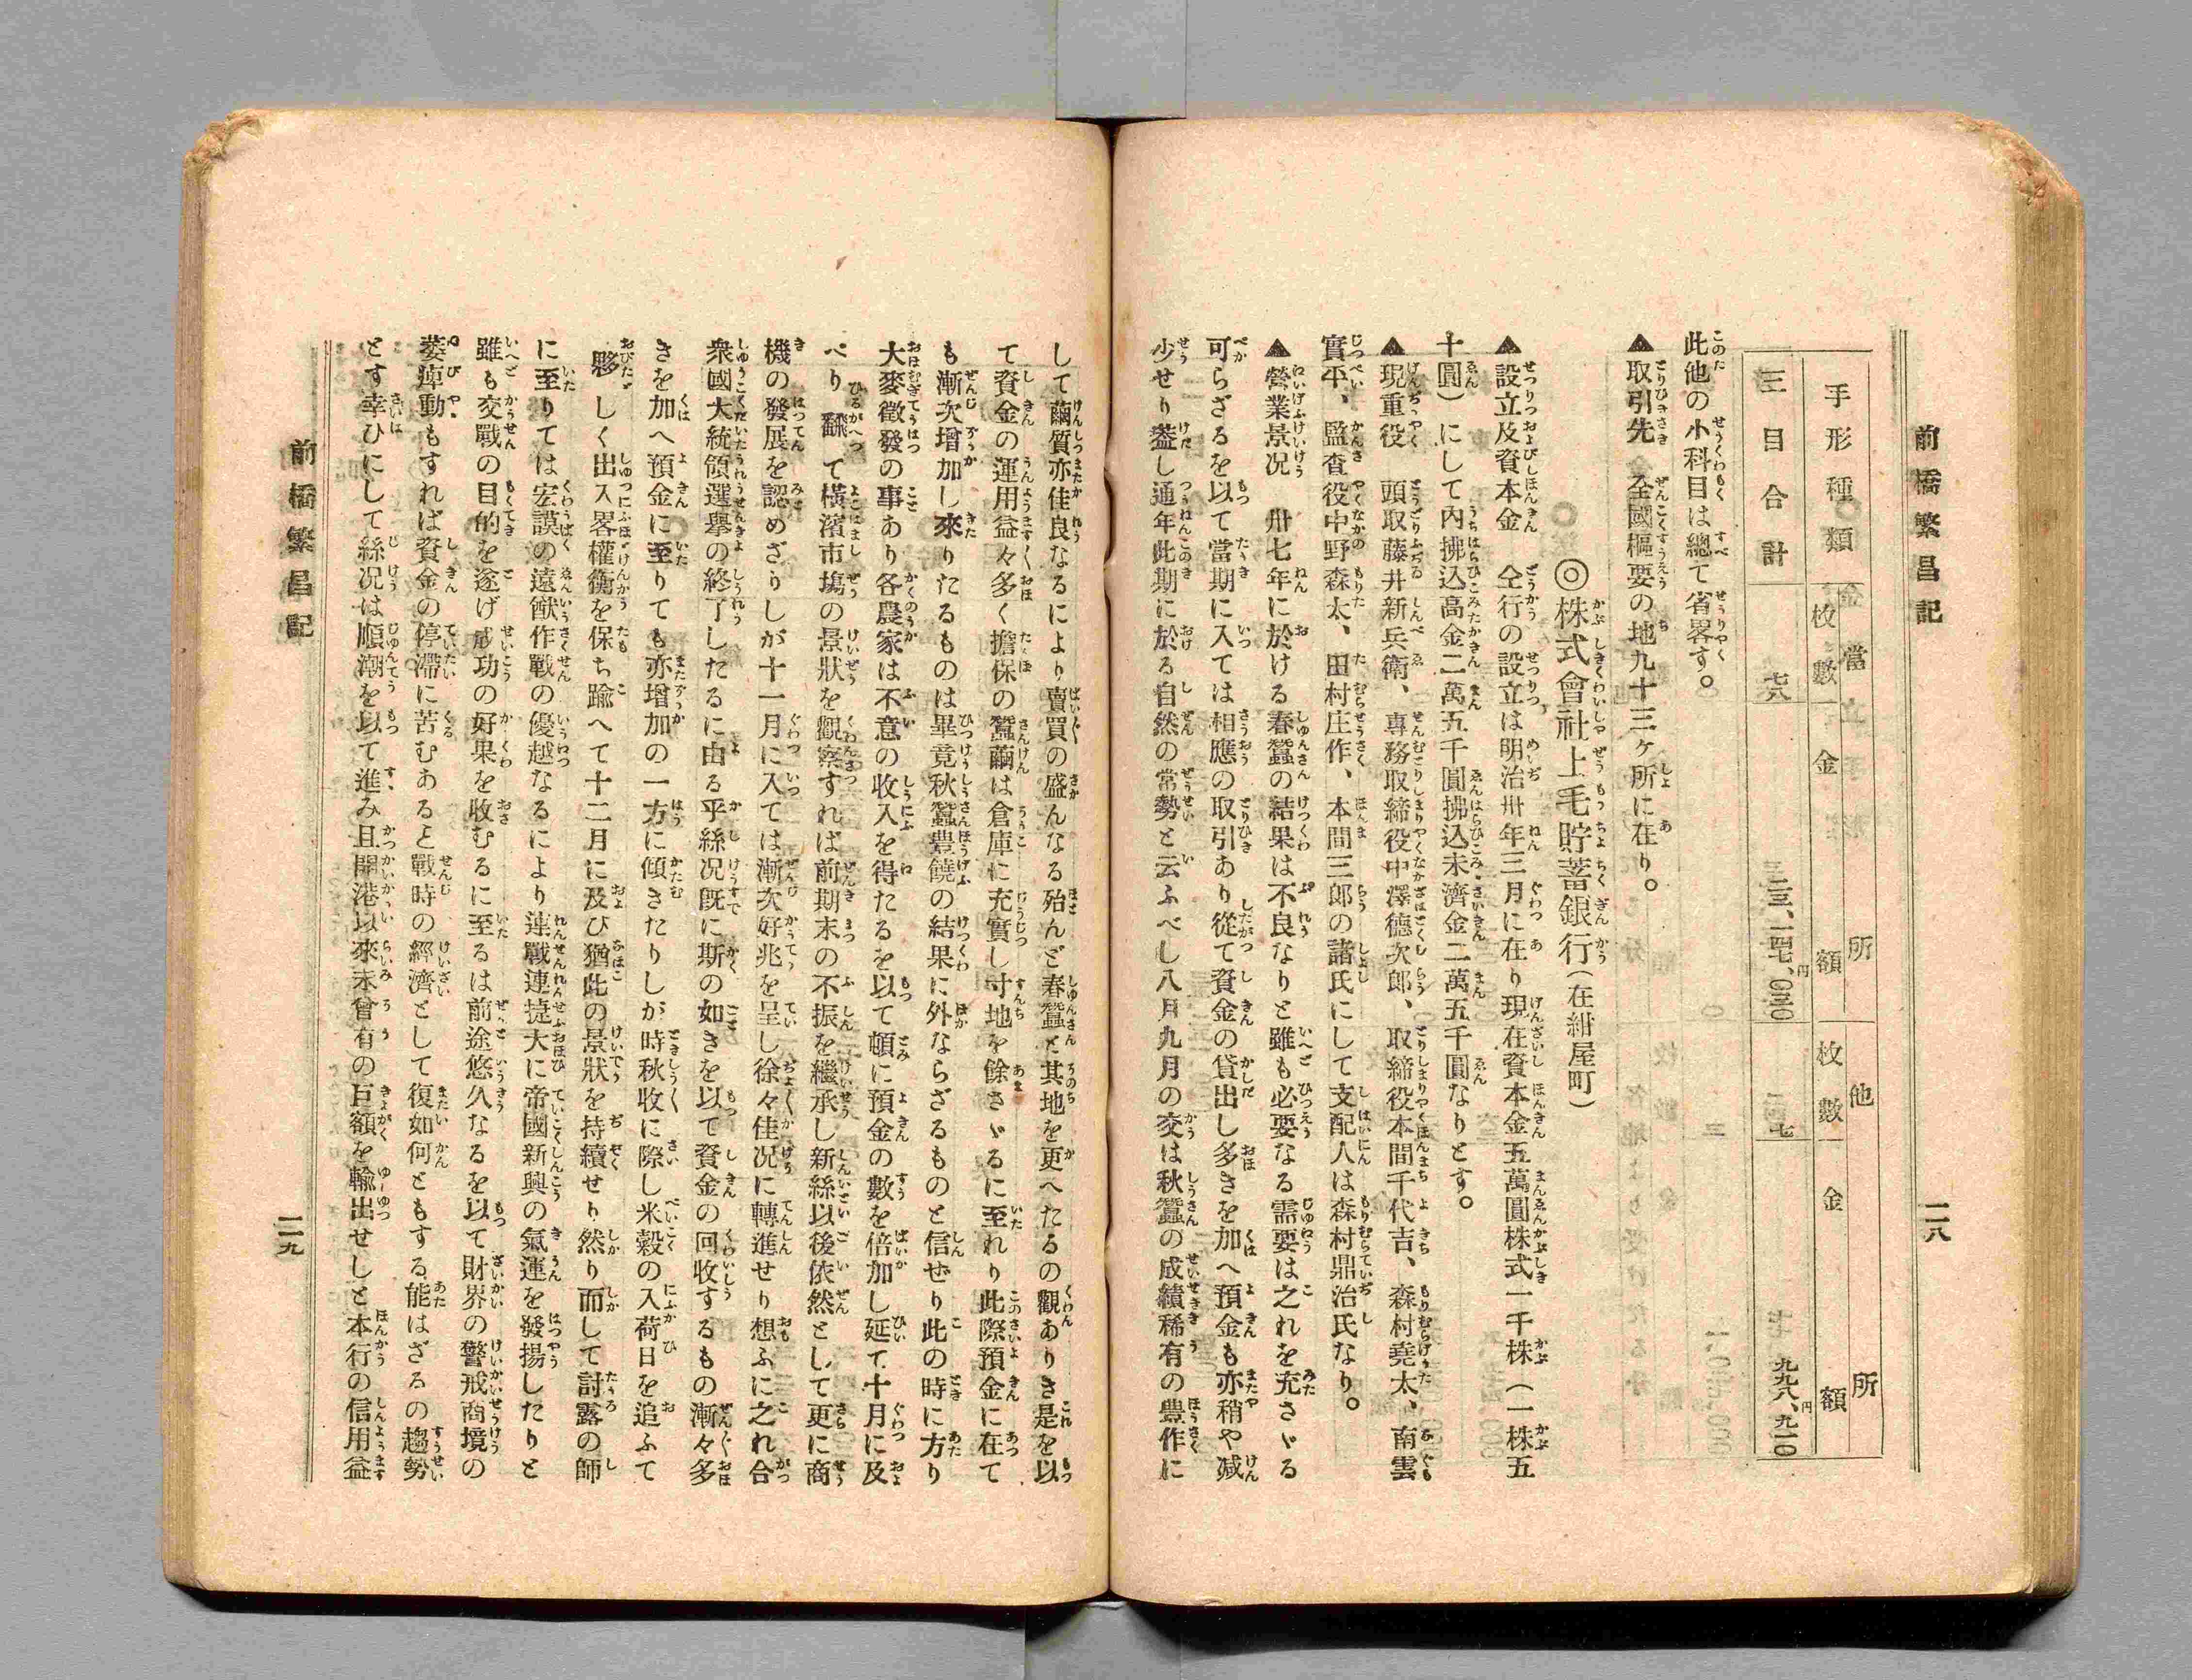 前橋繁昌記
二八
手形種類
當所
他所
枚數
金額
枚數
金額
三目合計
七八
二三、一四七、〇三〇円
二四七
九九八、九一〇円
此他の小科目は總て省畧す。
▲取引先 全國樞要の地九十三ヶ所に在り。
◎株式會社上毛貯蓄銀行(在紺屋町)
▲設立及資本金 仝行の設立は明治卅年三月に在り現在資本金五萬圓株式一千株(一株五
十圓)にして內拂込高金二萬五千圓拂込未濟金二萬五千圓なりとす。
▲現重役 頭取藤井新兵衛、專務取締役中澤德次郎、取締役本間千代吉、森村堯太、南雲
實平、監査役中野森太、田村庄作、本間三郎の諸氏にして支配人は森村鼎治氏なり。
▲營業景况 卅七年に於ける春蠶の結果は不良なりと雖も必要なる需要は之れを充さゞる
可らざるを以て當期に入ては相應の取引あり從て資金の貸出し多きを加へ預金も亦稍や减
少せり蓋し通年此期に於る自然の常勢と云ふべし八月九月の交は秋蠶の成績稀有の豊作に
して繭質亦佳良なるにより賣買の盛んなる殆んど春蠶と其地を更へたるの觀ありき是を以
て資金の運用益々多く擔保の蠶繭は倉庫に充實し寸地を餘さゞるに至れり此際預金に在て
も漸次增加し來りたるものは畢竟秋蠶豊饒の結果に外ならざるものと信せり此の時に方り
大麥徵發の事あり各農家は不意の收入を得たるを以て頓に預金の數を倍加し延て十月に及
べり飜て橫濱市塲の景狀を觀察すれば前期末の不振を繼承し新絲以後依然として更に商
機の發展を認めざりしが十一月に入ては漸次好兆を呈し徐々佳况に轉進せり想ふに之れ合
衆國大統領選擧の終了したるに由る乎絲况旣に斯の如きを以て資金の回收するもの漸々多
きを加へ預金に至りても亦增加の一方に傾きたりしが時秋收に際し米穀の入荷日を追ふて
夥しく出入畧權衡を保ち踰へて十二月に及び猶此の景狀を持續せり然り而して討露の師
に至りては宏謨の遠猷作戰の優越なるにより連戰連捷大に帝國新興の氣運を發揚したりと
雖も交戰の目的を遂げ成功の好果を收むるに至るは前途悠久なるを以て財界の警戒商境の
萎痺動もすれば資金の停滯に苦むあると戰時の經濟として復如何ともする能はざるの趨勢
とす幸ひにして絲况は順潮を以て進み且開港以來未曾有の巨額を輸出せしと本行の信用益
前橋繁昌記
二九